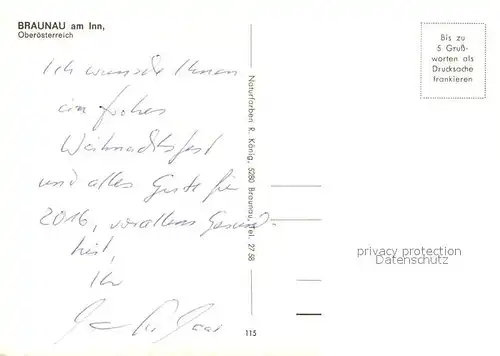 BRAUNAU am Inn,
Oberösterreich
Bis zu
5 Gruß-
worten als
Drucksache
frankieren
Ich wünsche Ihnen
ein frohes
Weihnachtsfest
und alles Gute für
2016, vor allem Gesund-
heit,
Ihr
Naturfarben R. König, 5280 Braunau, Tel. 27 58
privacy protection
Datenschutz
115